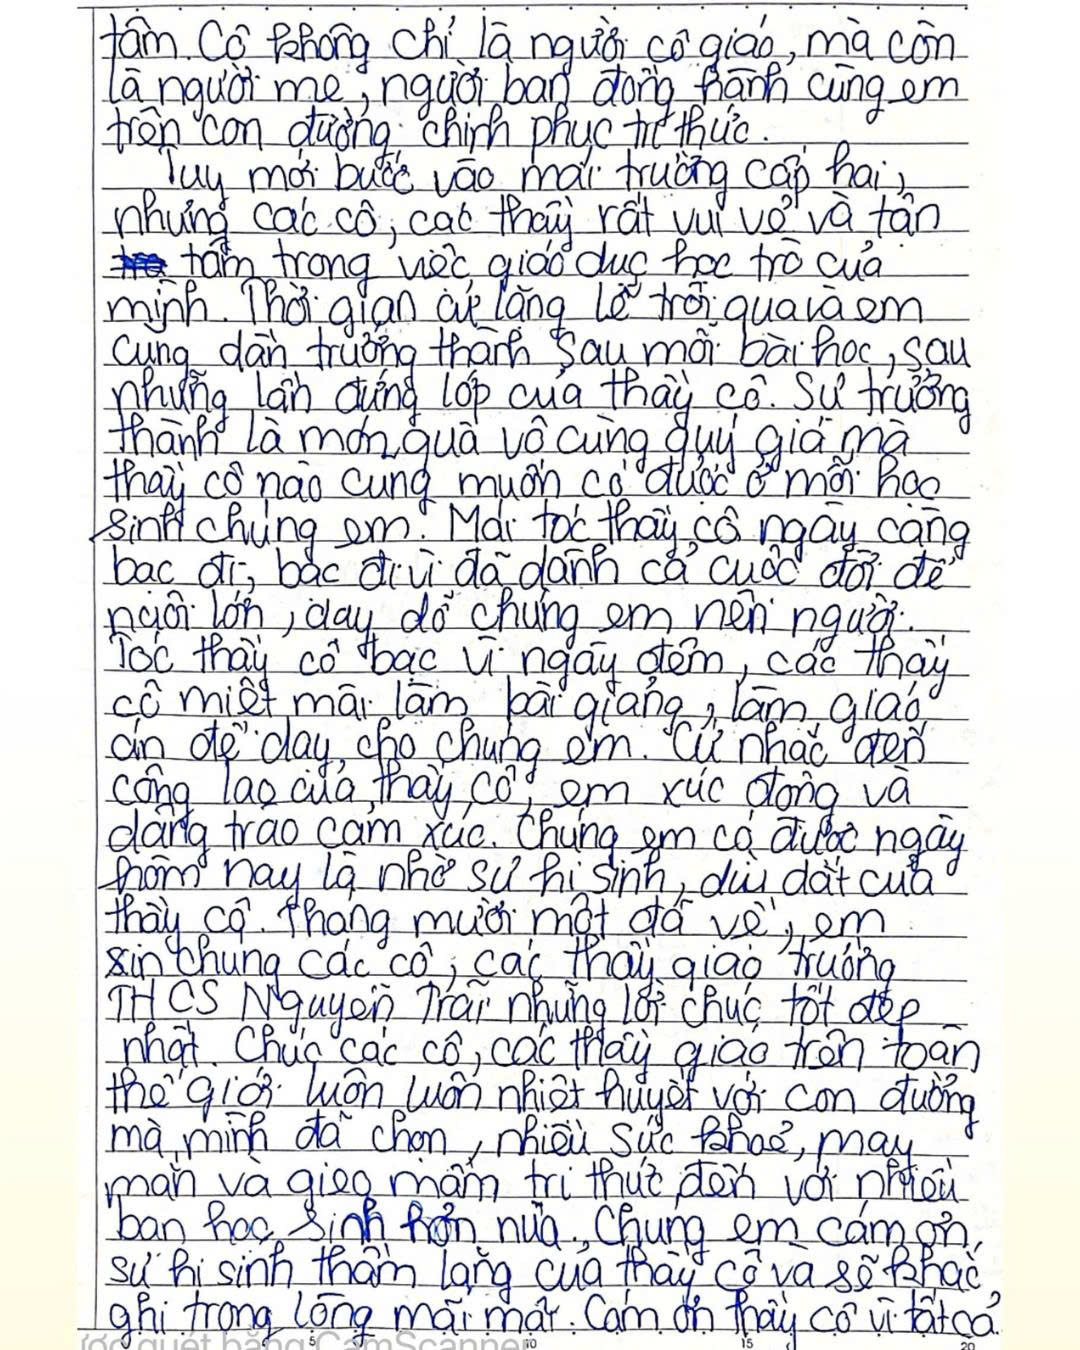 tâm. Cô không chỉ là người cô giáo, mà còn
là người mẹ, người bạn đồng hành cùng em
trên con đường chinh phục tri thức.
Tuy mới bước vào mái trường cấp hai,
nhưng các cô, các thầy rất vui vẻ và tận
tâm trong việc giáo dục học trò của
mình. Thời gian cứ lặng lẽ trôi qua và em
cũng dần trưởng thành sau mỗi bài học, sau
những lần đứng lớp của thầy cô. Sự trưởng
thành là món quà vô cùng quý giá mà
thầy cô nào cũng muốn có được ở mỗi học
sinh chúng em. Mái tóc thầy cô ngày càng
bạc đi, bạc đi vì đã dành cả cuộc đời để
nuôi lớn, dạy dỗ chúng em nên người.
Tóc thầy cô bạc vì ngày đêm, các thầy
cô miệt mài làm bài giảng, làm giáo
án để dạy cho chúng em. Cứ nhắc đến
công lao của thầy cô, em xúc động và
dâng trào cảm xúc. Chúng em có được ngày
hôm nay là nhờ sự hi sinh, dìu dắt của
thầy cô. Tháng mười một đã về, em
xin chung các cô, các thầy giáo trường
THCS Nguyễn Trãi những lời chúc tốt đẹp
nhất. Chúc các cô, các thầy giáo trên toàn
thế giới luôn luôn nhiệt huyết với con đường
mà mình đã chọn, nhiều sức khoẻ, may
mắn và gieo mầm tri thức đến với nhiều
bạn học sinh hơn nữa. Chúng em cảm ơn
sự hi sinh thầm lặng của thầy cô và sẽ khắc
ghi trong lòng mãi mãi. Cảm ơn thầy cô vì tất cả.
ược quét bằng CamScanner
5 10 15 20